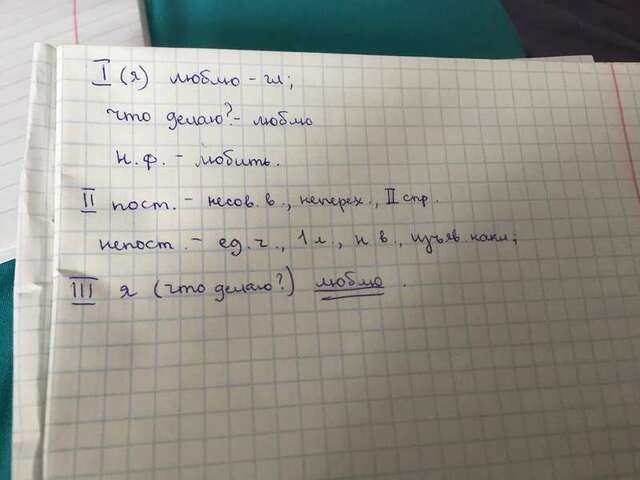 I (я) люблю - гл;
что делаю? - люблю
н.ф. - любить.
II пост. - несов. в., неперех., II спр.
непост. - ед. ч., 1 л., н в., изъяв. накл;
III я (что делаю?) люблю.